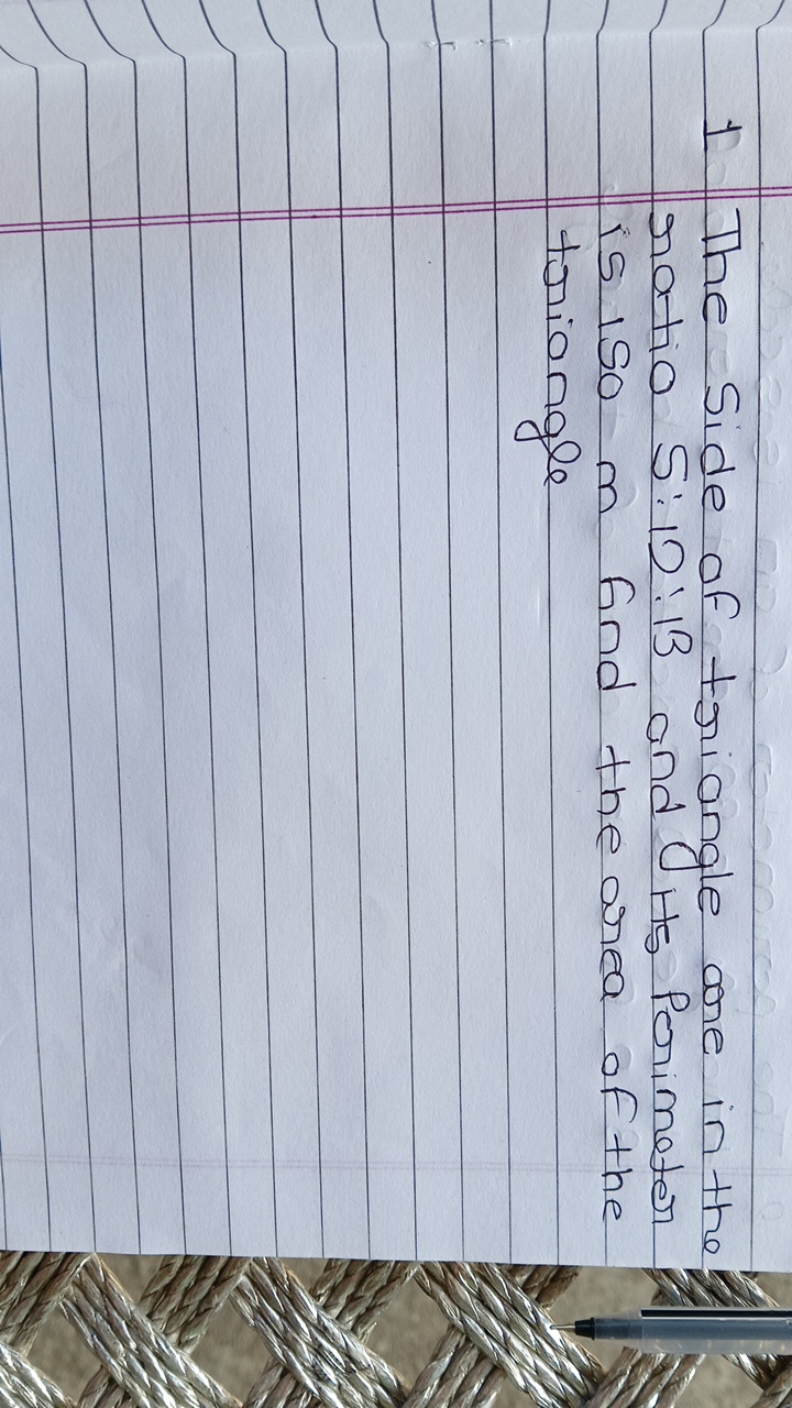 1. The Side of triangle are in the
ratio 5:12:13 and its Perimeter
is 150 m find the area of the
triangle